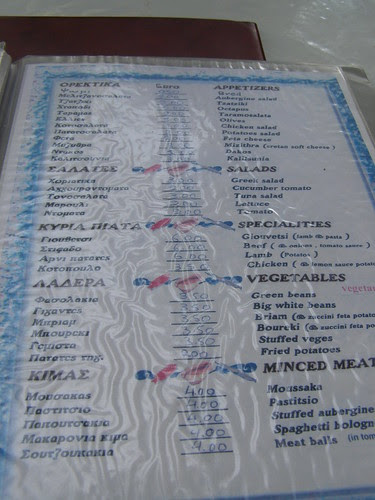 ΟΡΕΚΤΙΚΑ Euro APPETIZERS
Ψωμι Bread
Μελιτζανοσαλατα Aubergine salad
Τζατζικι Tzatziki
Χταποδι Octapus
Ταραμας Taramosalata
Ελιες Olives
Κοτοσαλατα Chicken salad
Πατατοσαλατα Potatoes salad
Φετα Feta cheese
Μυζηθρα Mizithra (cretas soft cheese)
Ντακος Dakos
Καλιτσουνια Kalitsunia
ΣΑΛΑΤΕΣ SALADS
Χωριατικη Greek salad
Αγγουροντοματα Cucumber tomato
Τονοσαλατα Tuna salad
Μαρουλι Lettuce
Ντοματα Tomato
ΚΥΡΙΑ ΠΙΑΤΑ SPECIALITIES
Γιουβετσι Giouvetsi (lamb pasta)
Στιφαδο Beef ( onions, tomato sauce)
Αρνι πατατες 6.00 Lamb (Potatos)
Κοτοπουλο Chicken ( lemon sauce potato
ΛΑΔΕΡΑ VEGETABLES
vegeta
Φασολακια Green beans
Γιγαντες Big white beans
Μπριαμ 3.50 Briam ( succini feta potato
Μπουρεκι 3.50 Boureki ( succini feta potato
Γεμιστα 3.50 Stuffed veges
Πατατες τηγ. Fried potatoes
ΚΙΜΑΣ MINCED MEAT
Μουσακας 4.00 Moussaka
Παστιτσιο 4.00 Pastitsio
Παπουτσακια 4.00 Stuffed aubergine
Μακαρονια κιμα 4.00 Spaghetti bologn
Σουτζουκακια 4.00 Meat balls (in tom